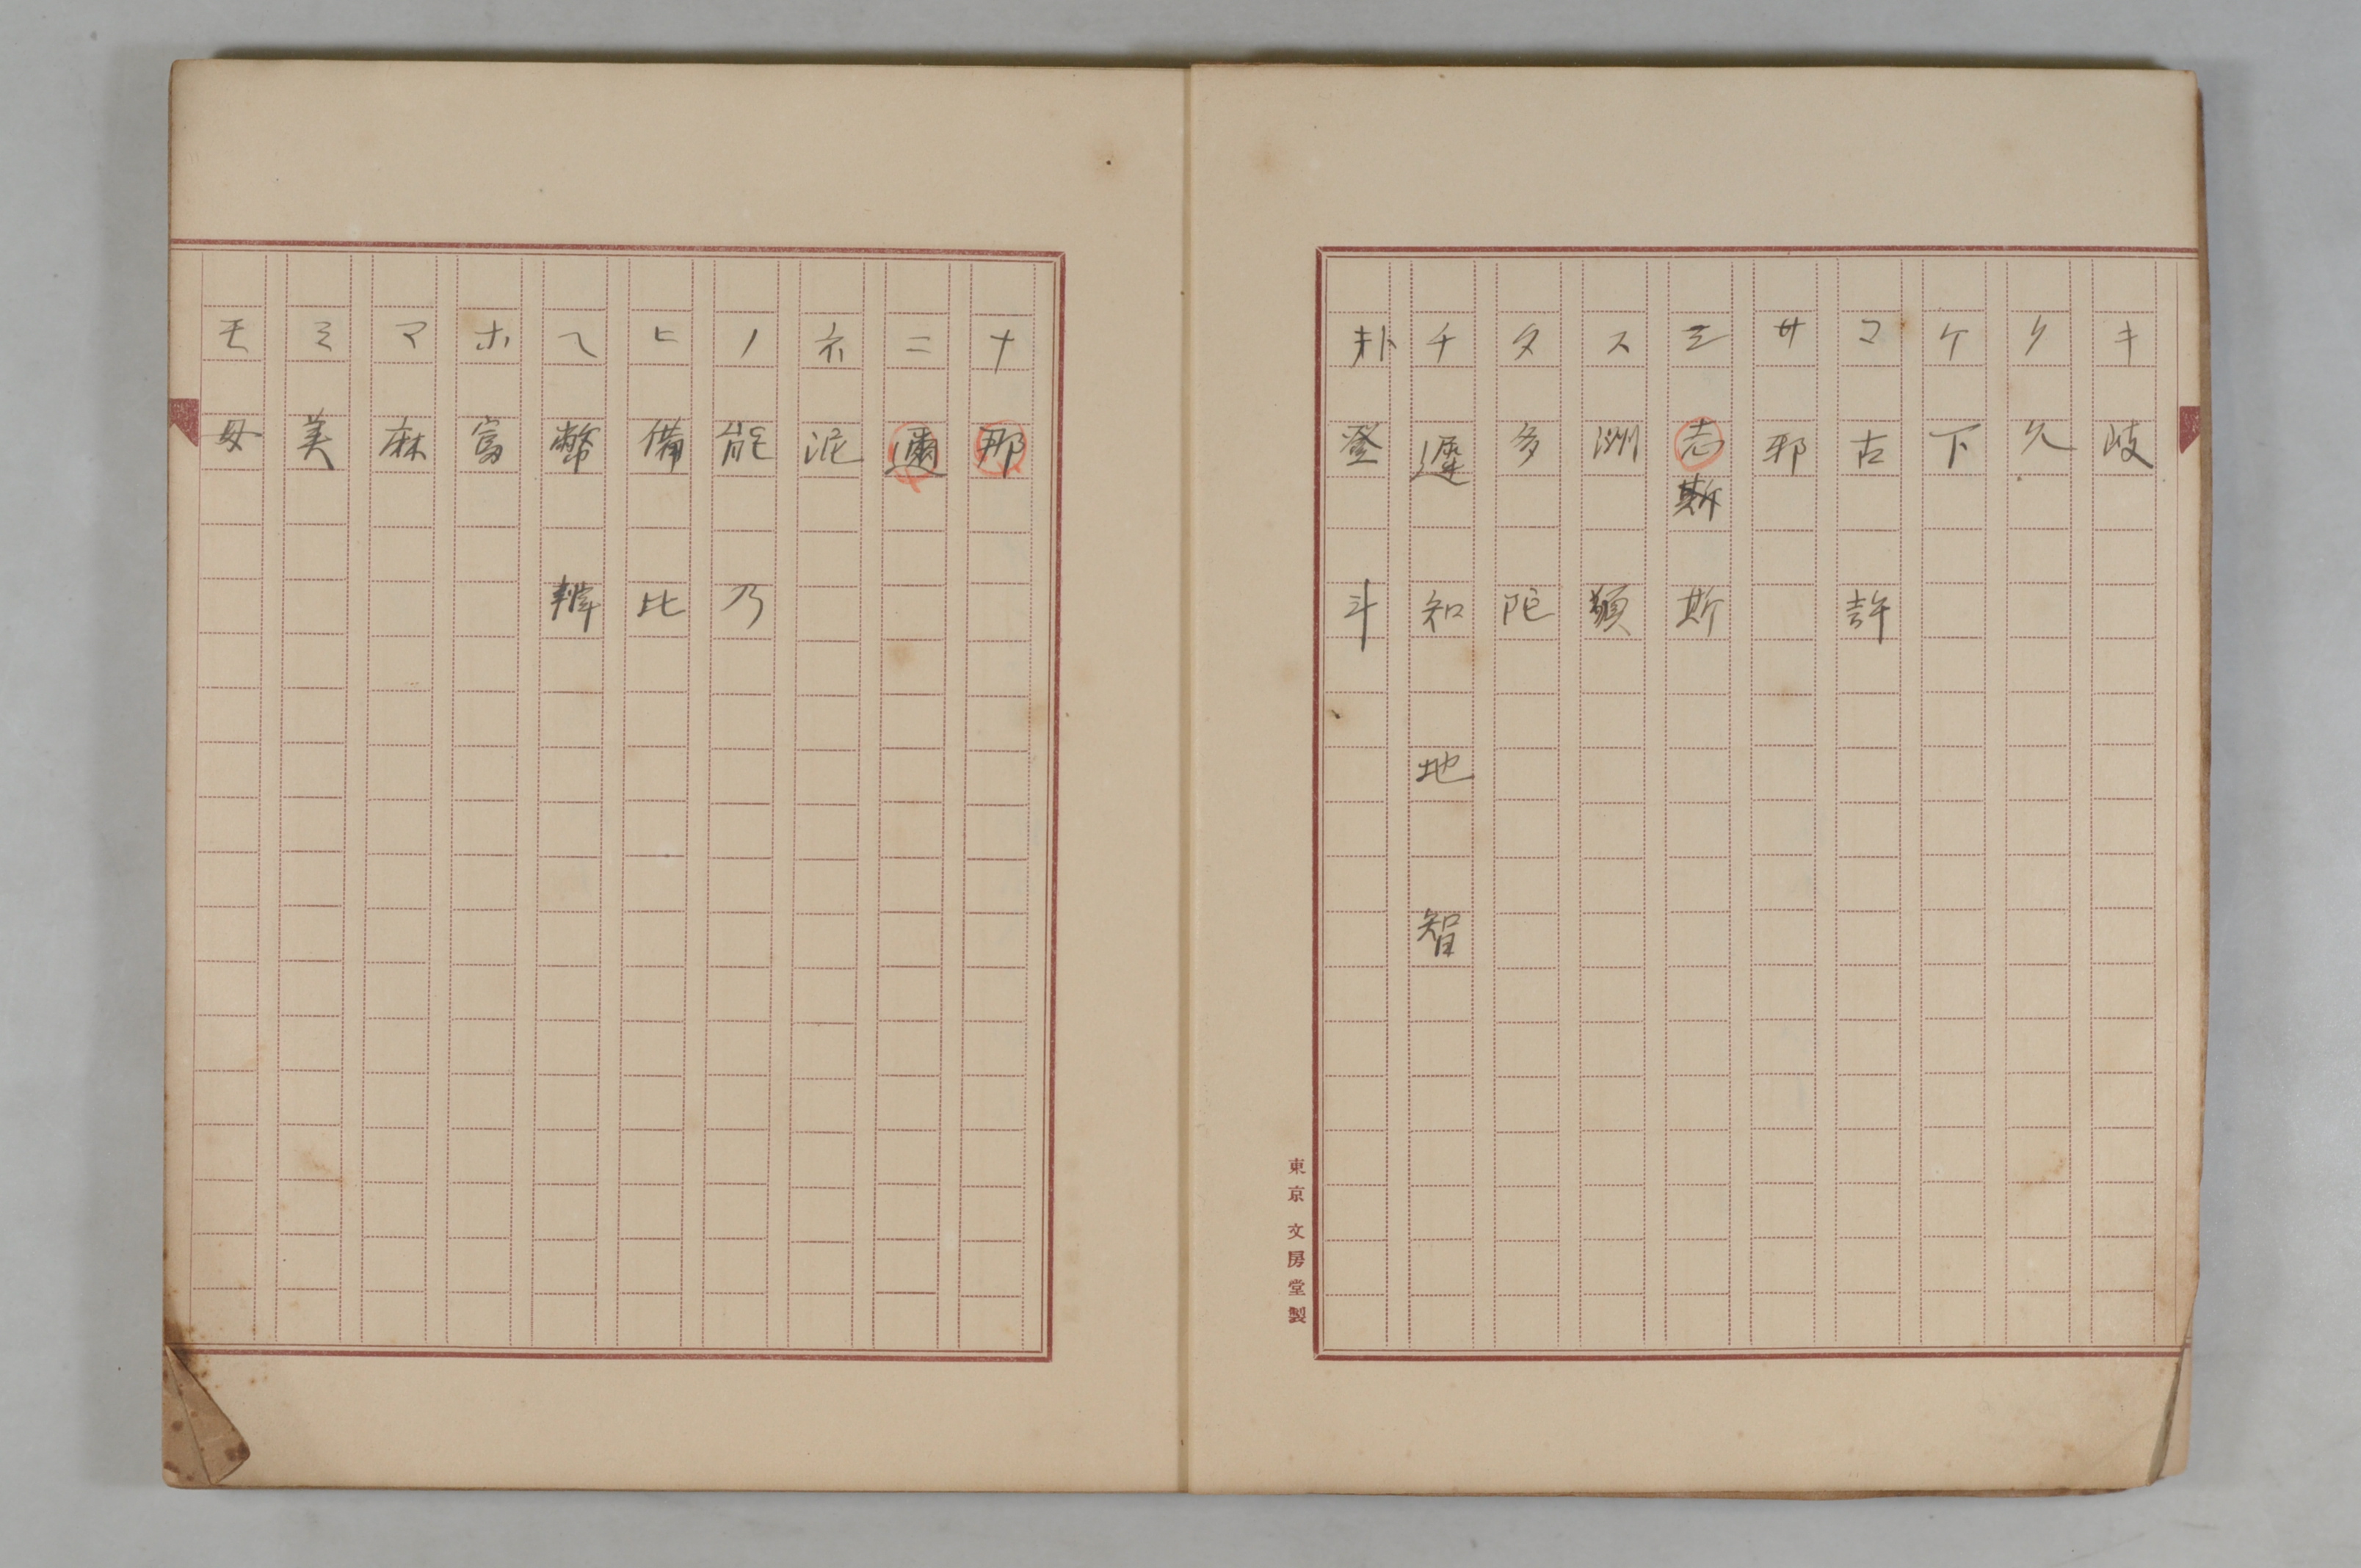 キ 岐
ク 久
ケ 下
コ 古 許
サ 邪
シ 志 斯 斯
ス 洲 須
タ 多 陀
チ 遅 知 地 智
ト 登 斗
東京 文房堂製
ナ 那
ニ 邇
ネ 泥
ノ 能 乃
ヒ 備 比
ヘ 幣 辨
ホ 富
マ 麻
ミ 美
モ 母